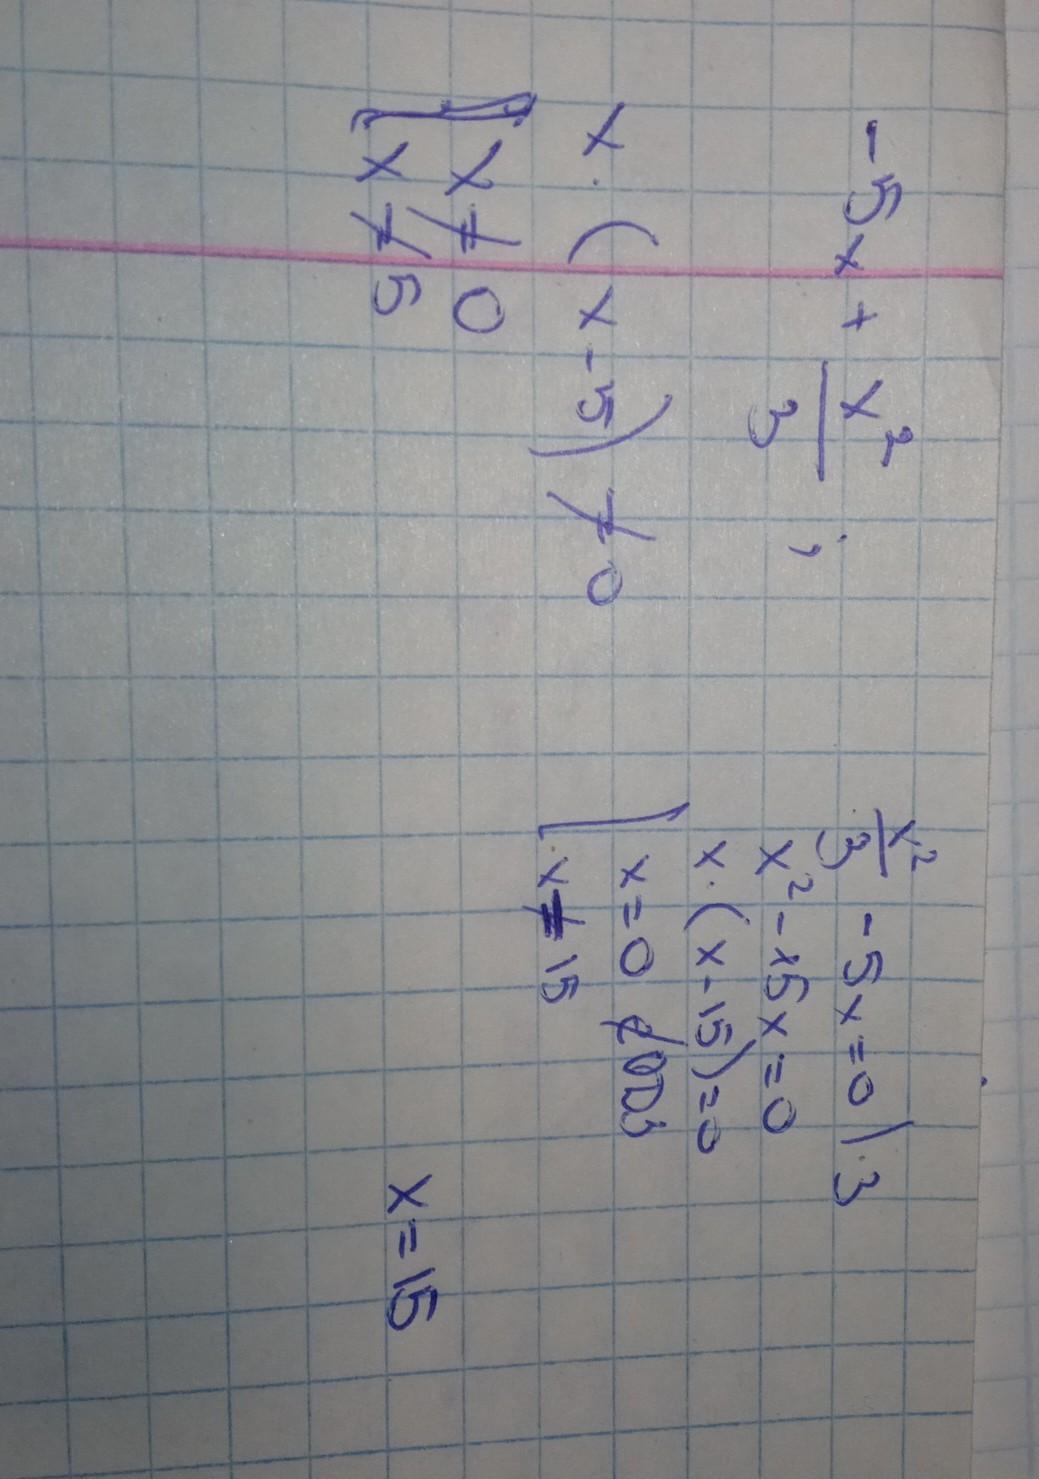 -5x + x²/3 ;
x · (x - 5) ≠ 0
[ x ≠ 0
x ≠ 5
x²/3 - 5x = 0 | · 3
x² - 15x = 0
x · (x - 15) = 0
[ x = 0 ∉ ОДЗ
x = 15
x = 15